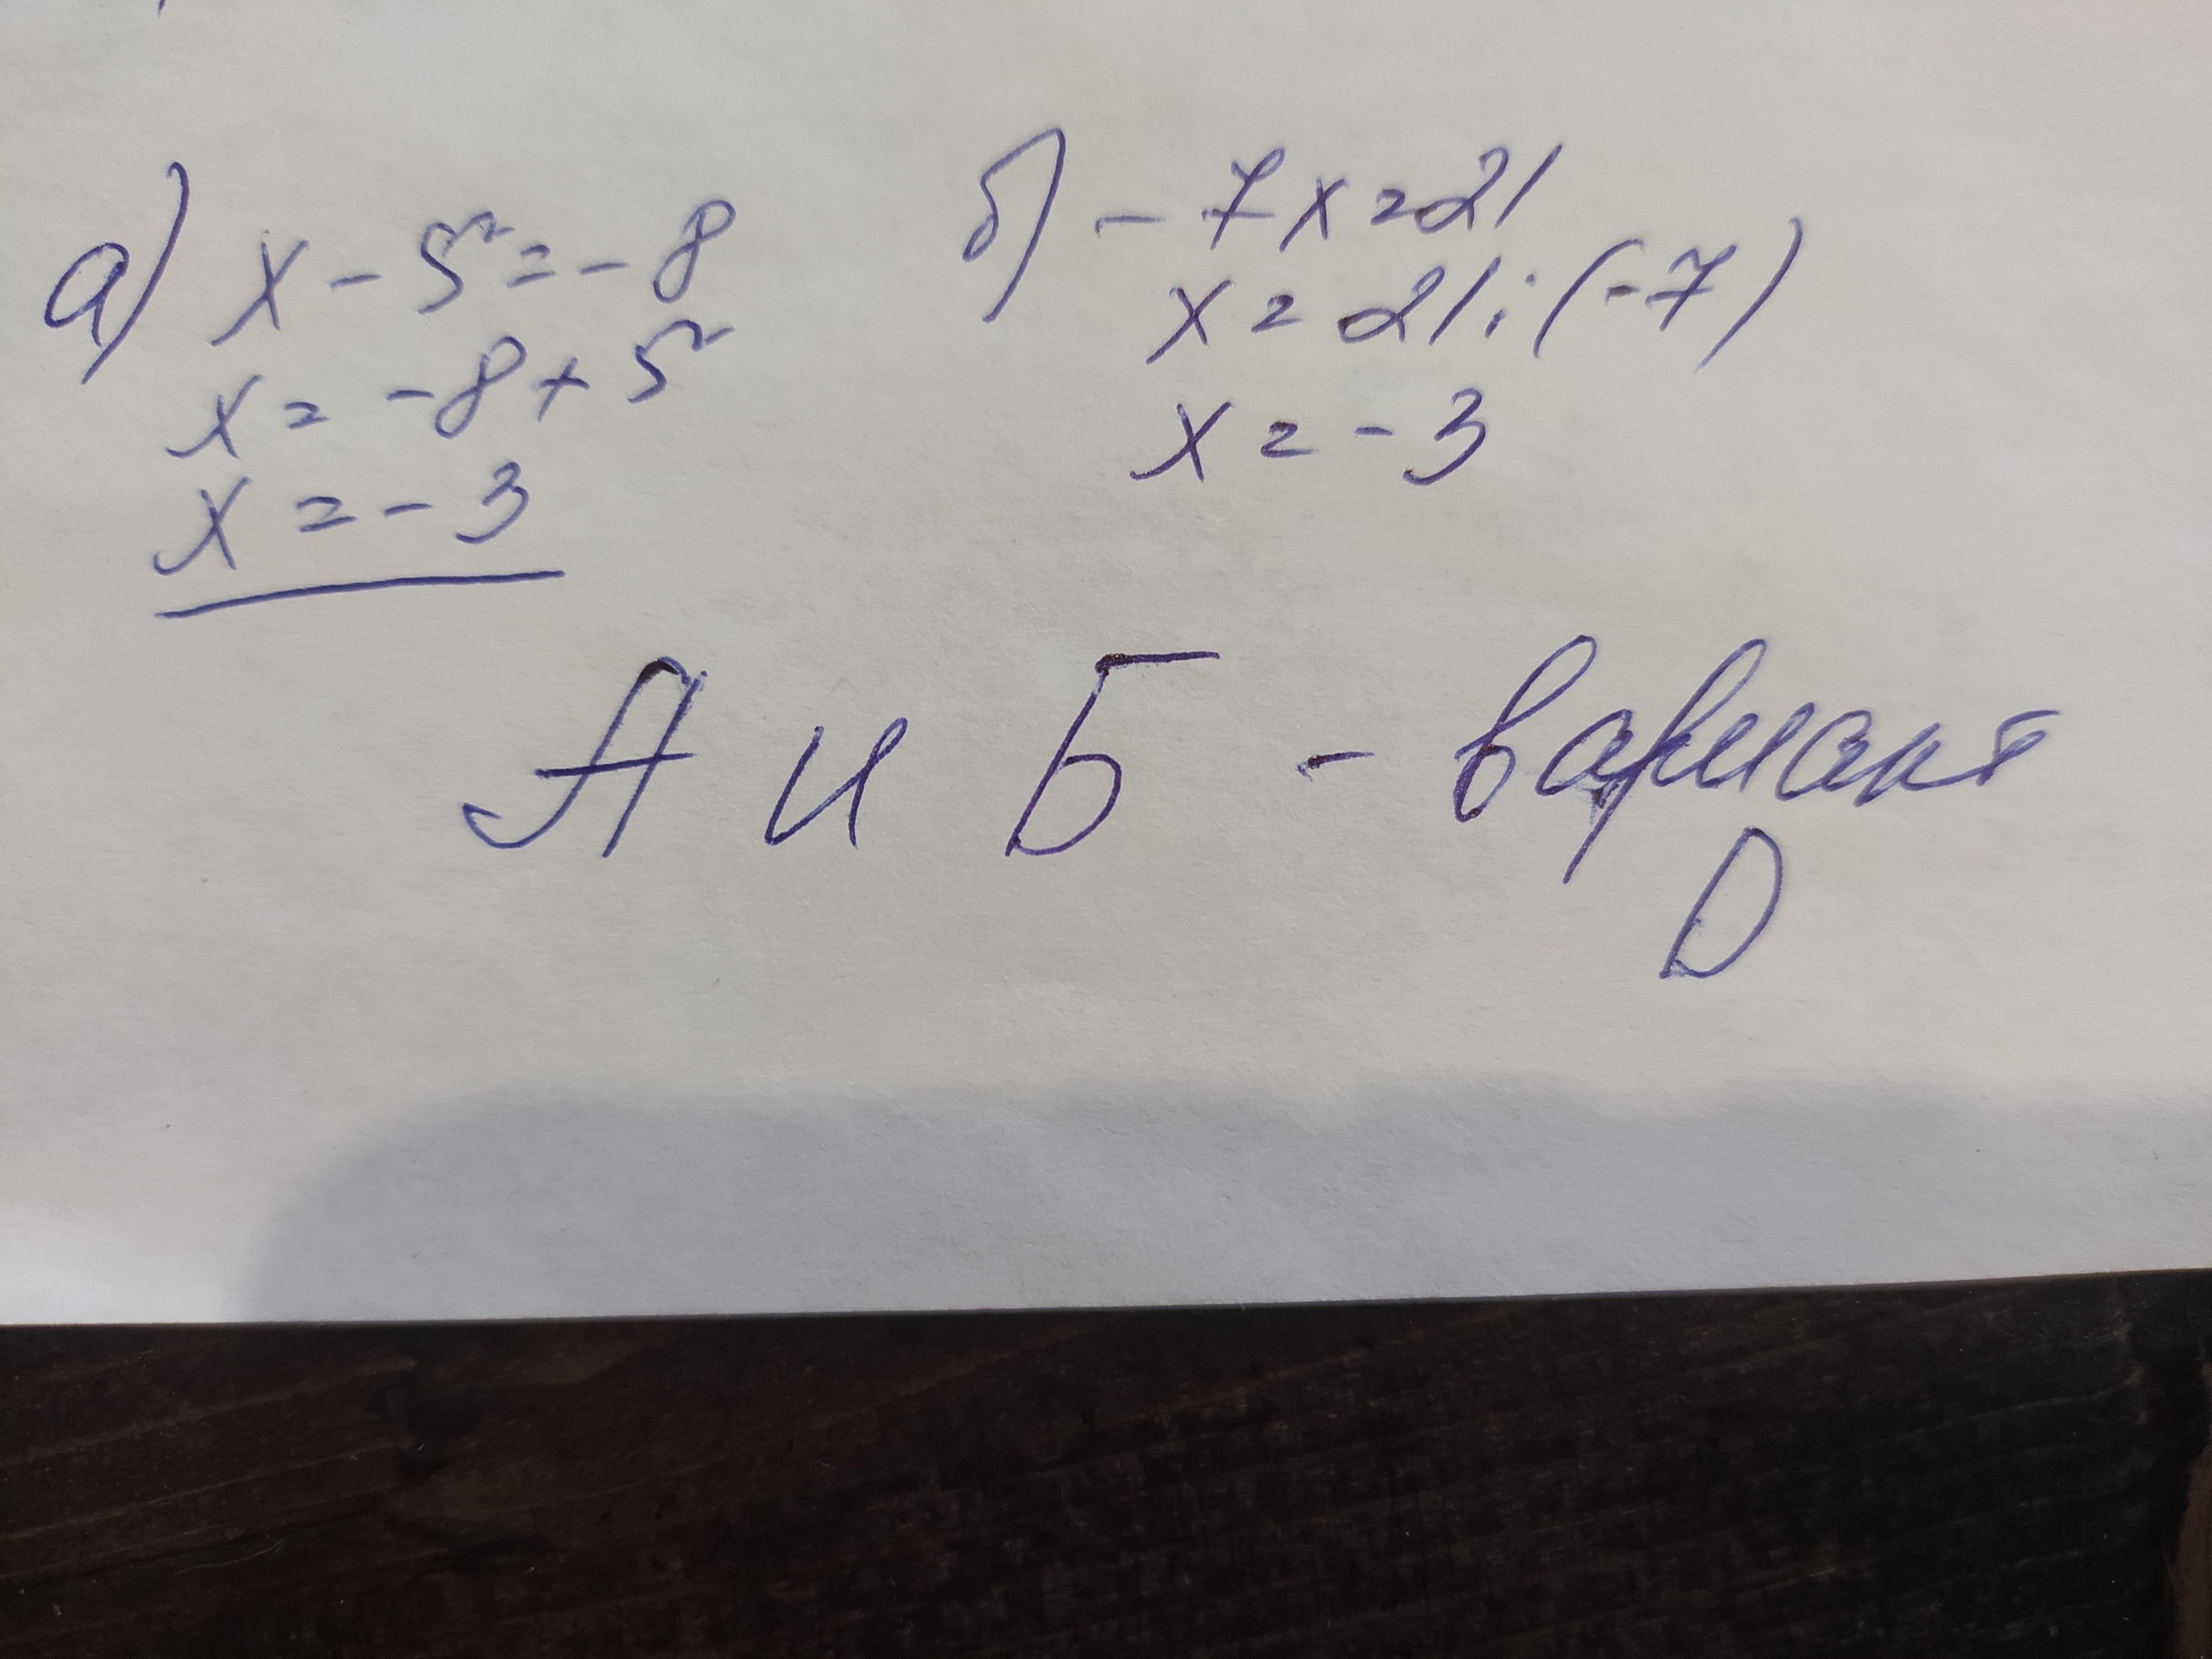 а) x - 5 = -8
x = -8 + 5
x = -3
б) -7x = 21
x = 21 : (-7)
x = -3
А и Б - вариант
D